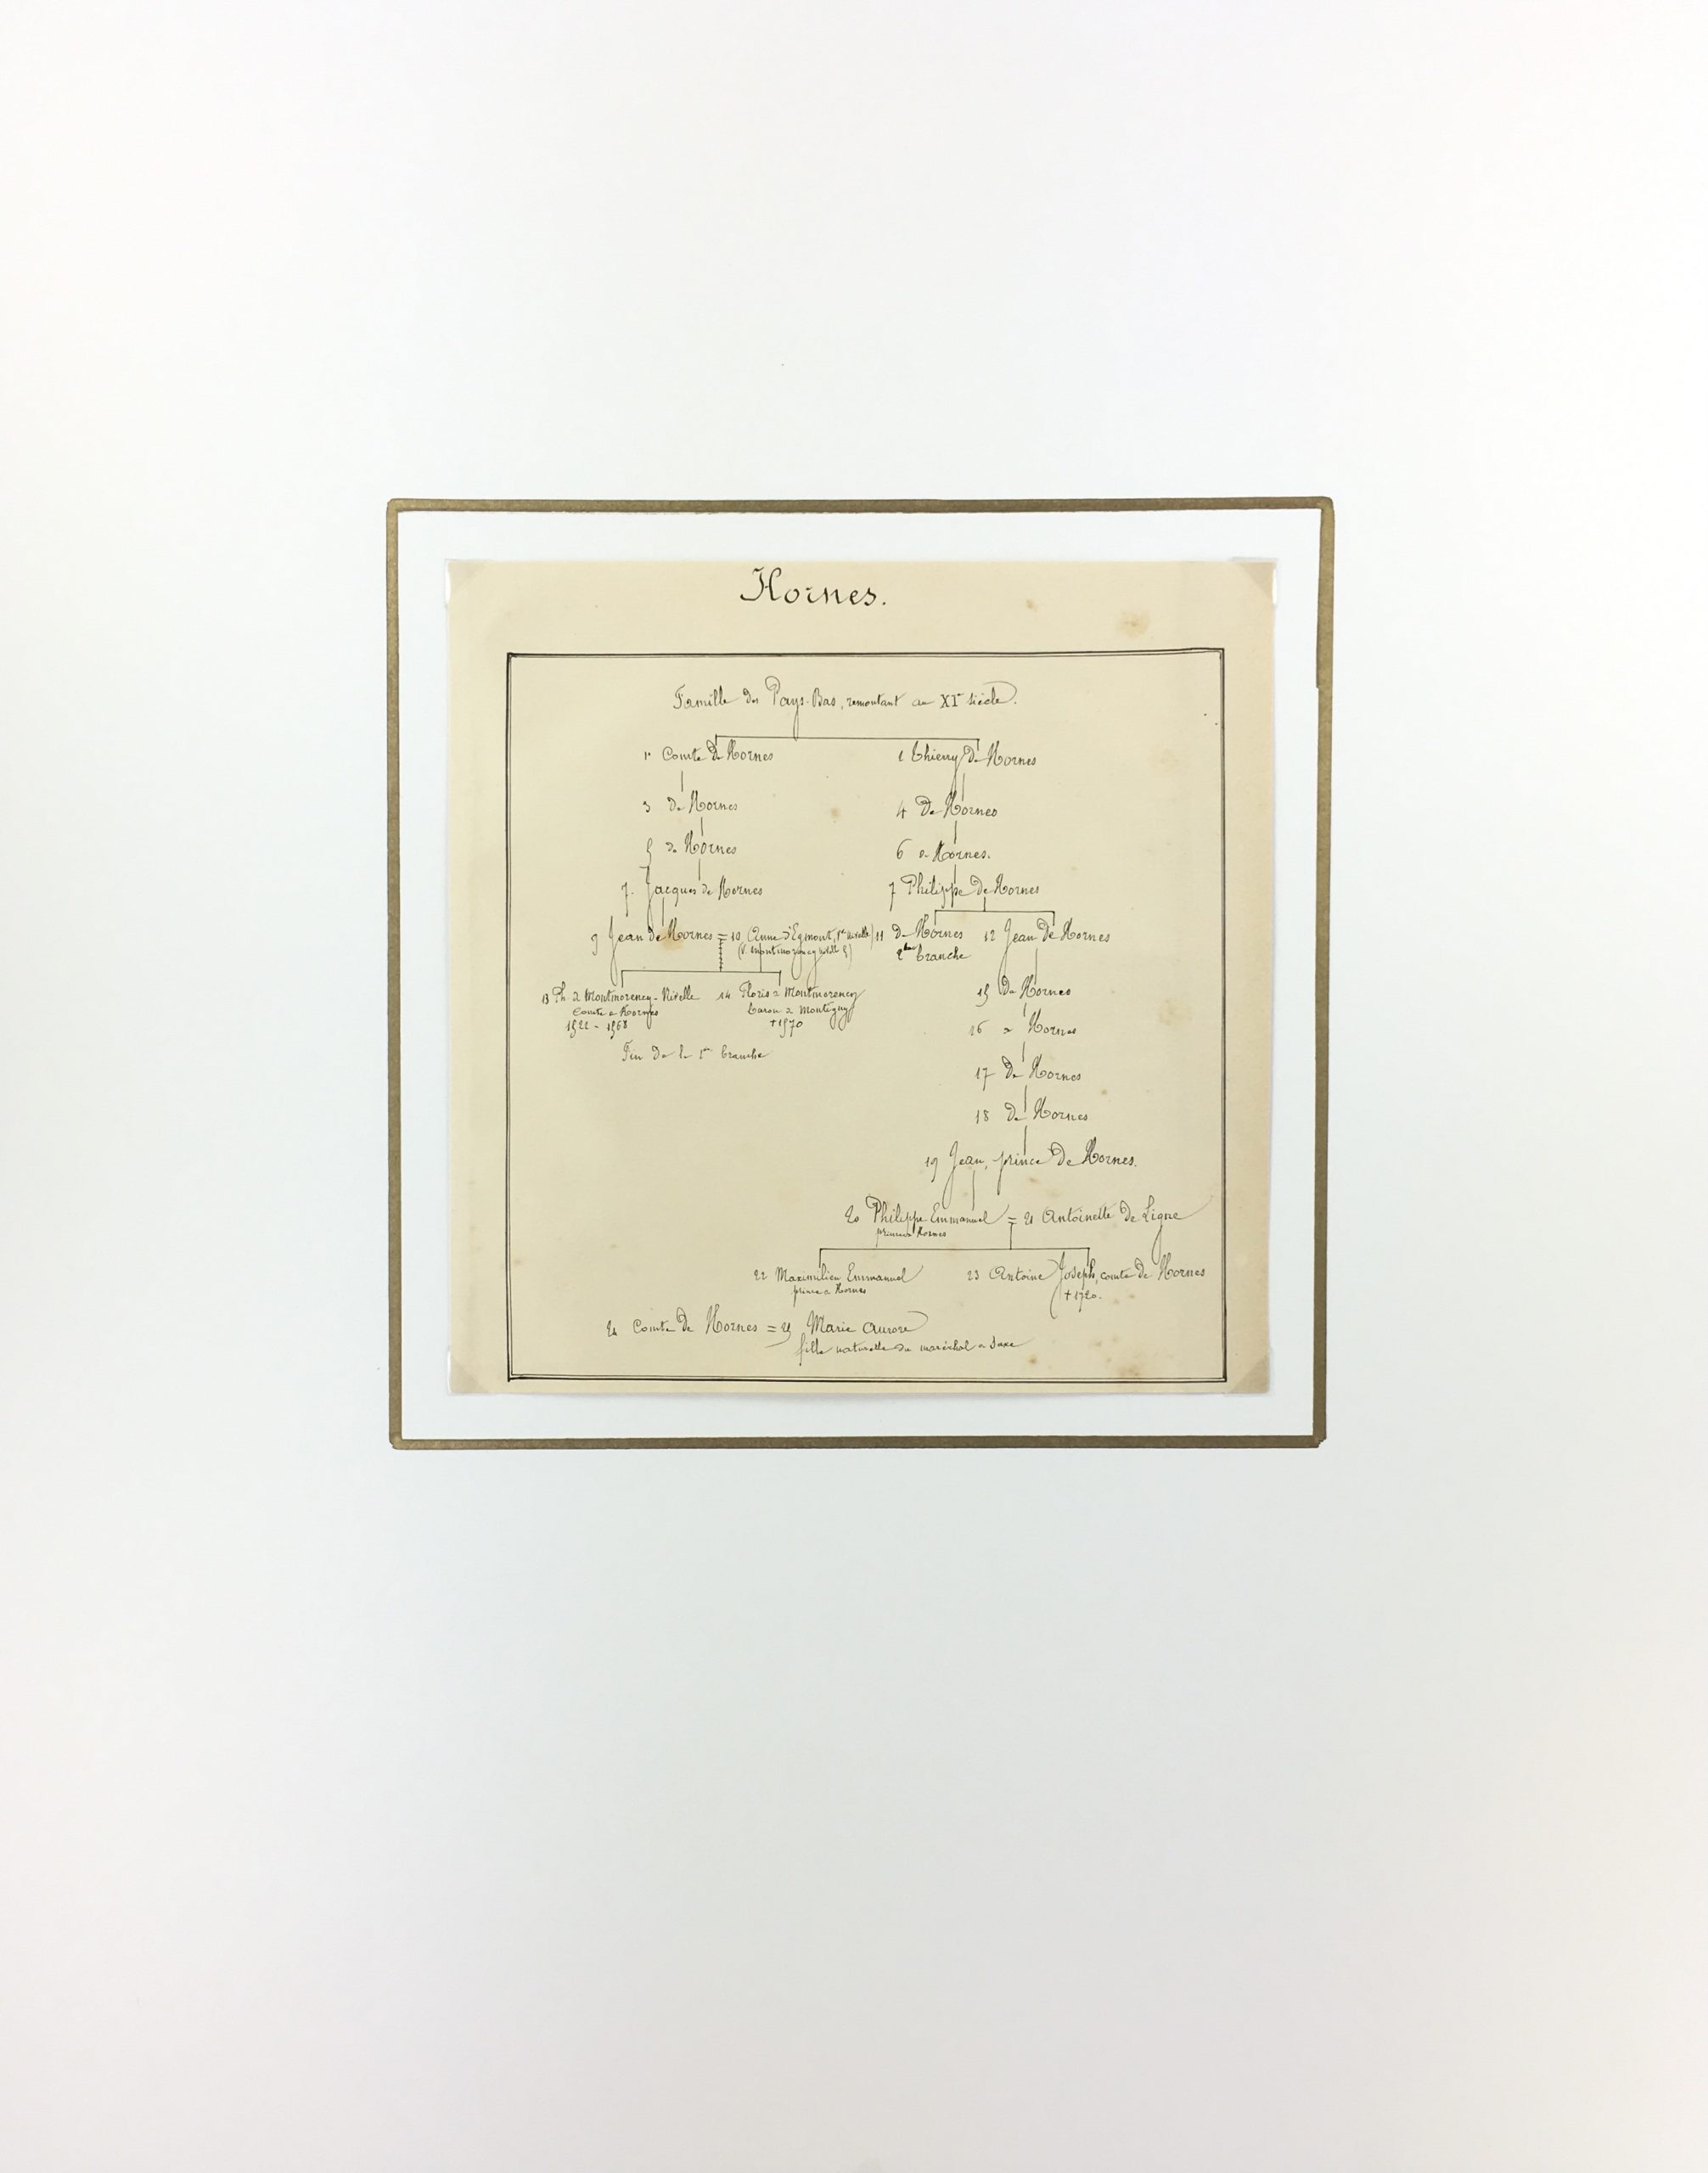 Hornes.
Famille des Pays-Bas, remontant au XIe siècle.
1 Comte de Hornes
2 Thierry de Hornes
3 de Hornes
4 De Hornes
5 de Hornes
6 de Hornes.
7. Jacques de Hornes
7 Philippe de Hornes
9 Jean de Hornes = 10 (Anne d'Egmont, Vve Nivelle)
(V. Montmorency
11 De Hornes
2me branche
12 Jean de Hornes
13 Ph. de Montmorency-Nivelle
Comte de Hornes
1522 - 1568
14 Floris de Montmorency
baron de Montigny
+ 1570
Fin de la 1re branche
15 De Hornes
16 de Hornes
17 De Hornes
18 De Hornes
19 Jean, prince de Hornes.
20 Philippe Emmanuel = 21 Antoinette de Ligne
prince de Hornes
22 Maximilien Emmanuel
prince de Hornes
23 Antoine Joseph, comte de Hornes
+ 1720.
24 Comte de Hornes = 25 Marie Aurore
fille naturelle du maréchal de Saxe